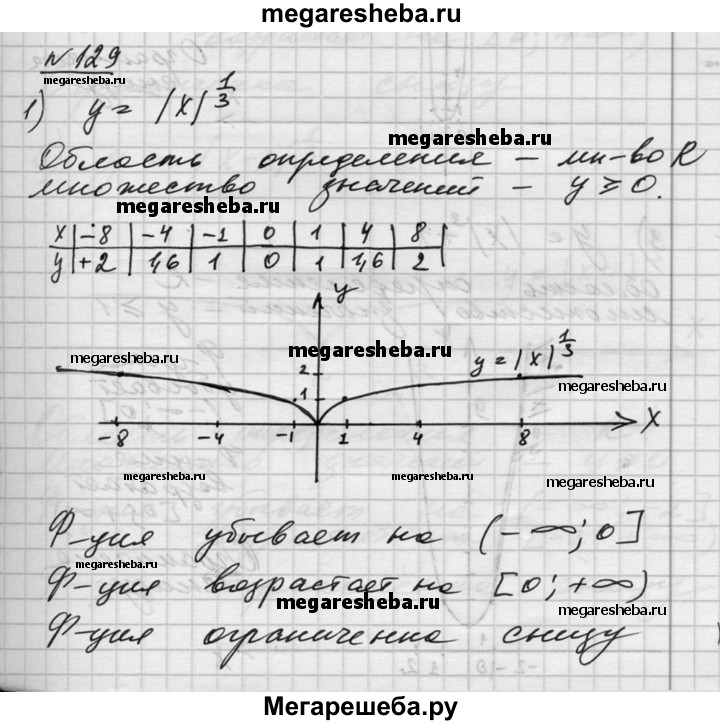 megaresheba.ru
№129
megaresheba.ru
1) y = |x|^{1/3}
megaresheba.ru
Область определения – мн-во R
множество значений – y ≥ 0.
megaresheba.ru
x | -8 | -4 | -1 | 0 | 1 | 4 | 8
y | +2 | 1,6 | 1 | 0 | 1 | 1,6 | 2
y
megaresheba.ru megaresheba.ru y = |x|^{1/3}
2 megaresheba.ru
1
-8 -4 -1 1 4 8 x
megaresheba.ru megaresheba.ru megaresheba.ru
Ф-ция убывает на (-∞; 0]
megaresheba.ru
Ф-ция возрастает на [0; +∞)
megaresheba.ru megaresheba.ru
Ф-ция ограниченна снизу
megaresheba.ru
Мегарешеба.ру